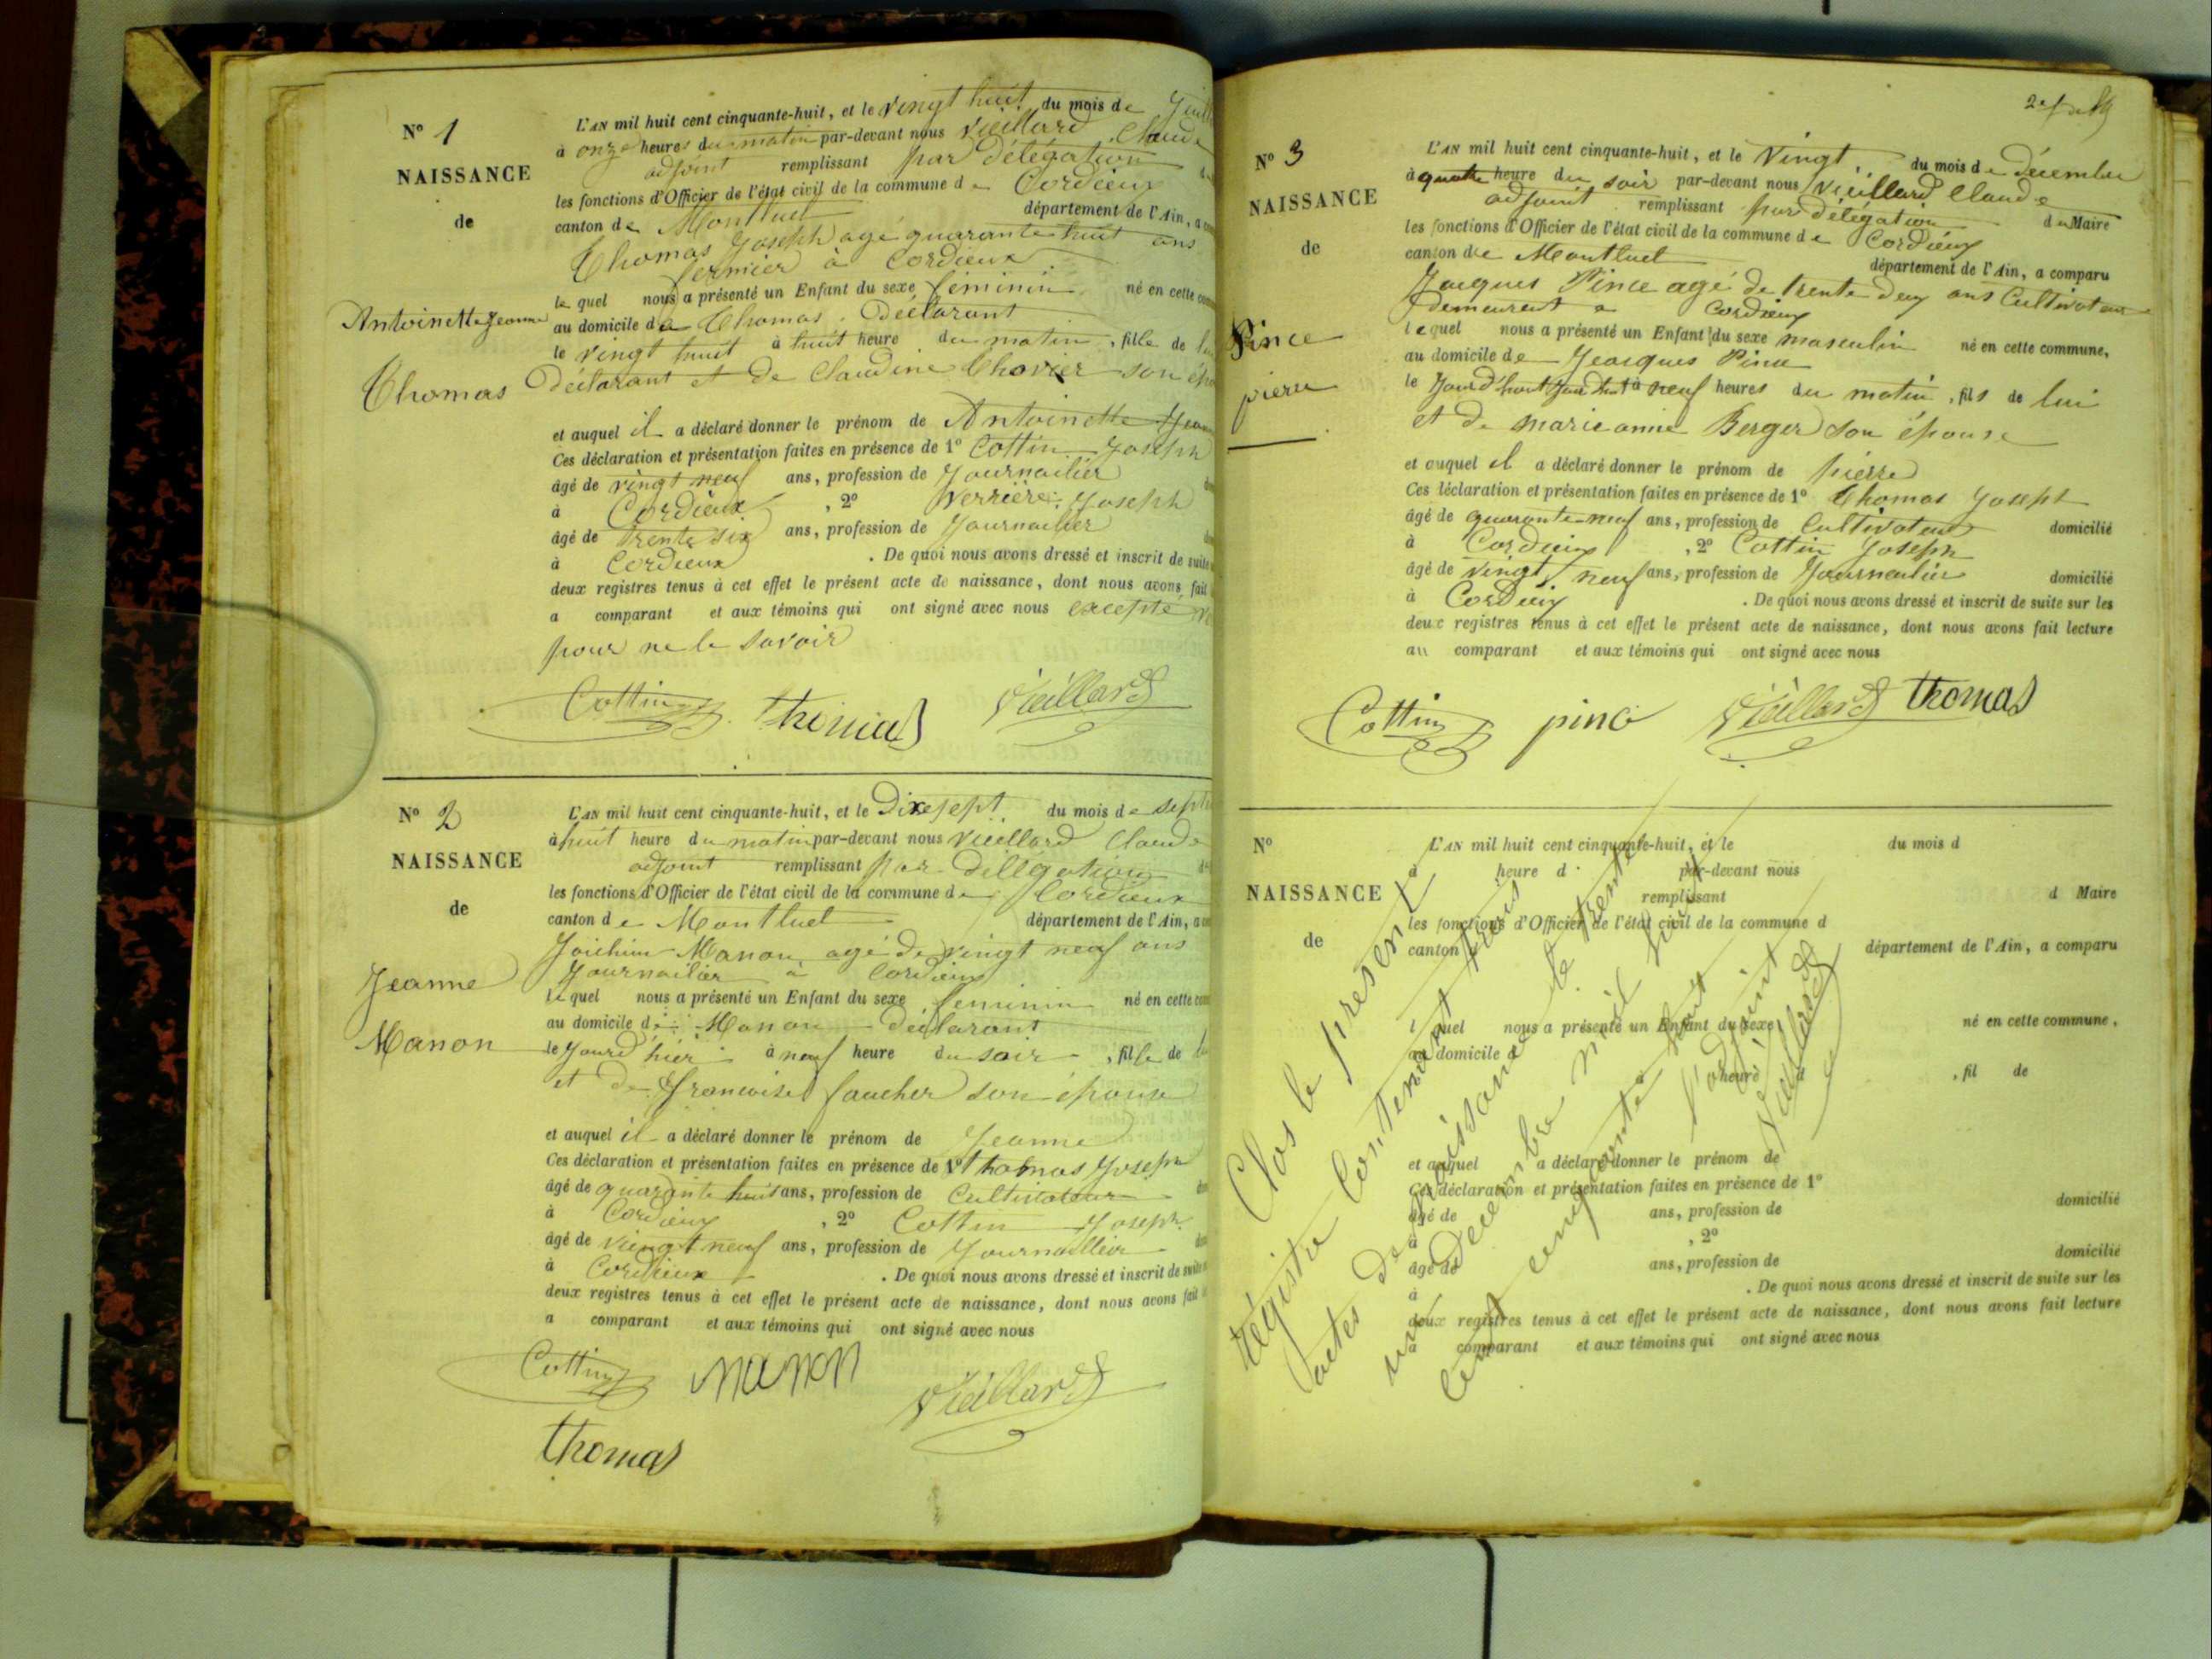 N° 1
NAISSANCE
de
Antoinette Jeanne
Thomas
L'AN mil huit cent cinquante-huit, et le vingt huit du mois de
à onze heures du matin par-devant nous Vieillard Claude
adjoint remplissant par délégation
les fonctions d'Officier de l'état civil de la commune de Cordieux
canton de Montluel département de l'Ain, a
Thomas Joseph agé quarante huit ans
fermier à Cordieux
lequel nous a présenté un Enfant du sexe féminin né en cette
au domicile de Thomas Déclarant
le vingt huit à huit heure du matin, fille de
Déclarant et de Claudine Chovier son
et auquel il a déclaré donner le prénom de Antoinette
Ces déclaration et présentation faites en présence de 1° Cottin Joseph
âgé de vingt neuf ans, profession de Journailier
à Cordieux, 2° Verrière Joseph
âgé de trente six ans, profession de Journailier
à Cordieux. De quoi nous avons dressé et inscrit de suite
deux registres tenus à cet effet le présent acte de naissance, dont nous avons fait
a comparant et aux témoins qui ont signé avec nous excepté
pour ne le savoir
Cottin thomas Vieillard
N° 2
NAISSANCE
de
Jeanne
Manon
L'AN mil huit cent cinquante-huit, et le Dixesept du mois de
à huit heure du matin par-devant nous Vieillard Claude
adjoint remplissant par Dellégation
les fonctions d'Officier de l'état civil de la commune de Cordieux
canton de Montluel département de l'Ain, a
Joichim Manon agé de vingt neuf ans
Journailier à Cordieux
lequel nous a présenté un Enfant du sexe feminin né en cette
au domicile de Manon déclarant
le Jourd'hier à neuf heure du soir, fille de
et de francoise faucher son épouse
et auquel il a déclaré donner le prénom de Jeanne
Ces déclaration et présentation faites en présence de 1° Thomas Joseph
âgé de quarante huit ans, profession de Cultivateur
à Cordieux, 2° Cottin Joseph
âgé de vingt neuf ans, profession de Journaillier
à Cordieux. De quoi nous avons dressé et inscrit de suite
deux registres tenus à cet effet le présent acte de naissance, dont nous avons fait
a comparant et aux témoins qui ont signé avec nous
Cottin manon Vieillard
thomas
N° 3
NAISSANCE
de
Pince
pierre
L'AN mil huit cent cinquante-huit, et le Vingt du mois de Décembre
à quatre heure du soir par-devant nous Vieillard Claude
adjoint remplissant par délégation du Maire
les fonctions d'Officier de l'état civil de la commune de Cordieux
canton de Montluel département de l'Ain, a comparu
Jacques Pince agé de trente deux ans Cultivateur
demeurent a Cordieux
lequel nous a présenté un Enfant du sexe masculin né en cette commune,
au domicile de Jacques Pince
le à neuf heures du matin, fils de lui
et de marieanne Berger son épouse
et auquel il a déclaré donner le prénom de pierre
Ces déclaration et présentation faites en présence de 1° Thomas Joseph
âgé de quaronte-neuf ans, profession de Cultivateur domicilié
à Cordieux, 2° Cottin Joseph
âgé de vingt neuf ans, profession de Journealier domicilié
à Cordieux. De quoi nous avons dressé et inscrit de suite sur les
deux registres tenus à cet effet le présent acte de naissance, dont nous avons fait lecture
au comparant et aux témoins qui ont signé avec nous
Cottin pince Vieillard thomas
N°
NAISSANCE
de
L'AN mil huit cent cinquante-huit, et le du mois d
à heure d par-devant nous
remplissant d Maire
les fonctions d'Officier de l'état civil de la commune d
canton d département de l'Ain, a comparu
l quel nous a présenté un Enfant du sexe né en cette commune,
au domicile d
à heure d, fil de
et auquel a déclaré donner le prénom de
Ces déclaration et présentation faites en présence de 1°
âgé de ans, profession de domicilié
à, 2°
âgé de ans, profession de domicilié
à. De quoi nous avons dressé et inscrit de suite sur les
deux registres tenus à cet effet le présent acte de naissance, dont nous avons fait lecture
a comparant et aux témoins qui ont signé avec nous
Clos le présent
registre Contenant trois
actes de naissance le trente
un décembre mil huit
cent cinquante huit
l'adjoint
Vieillard